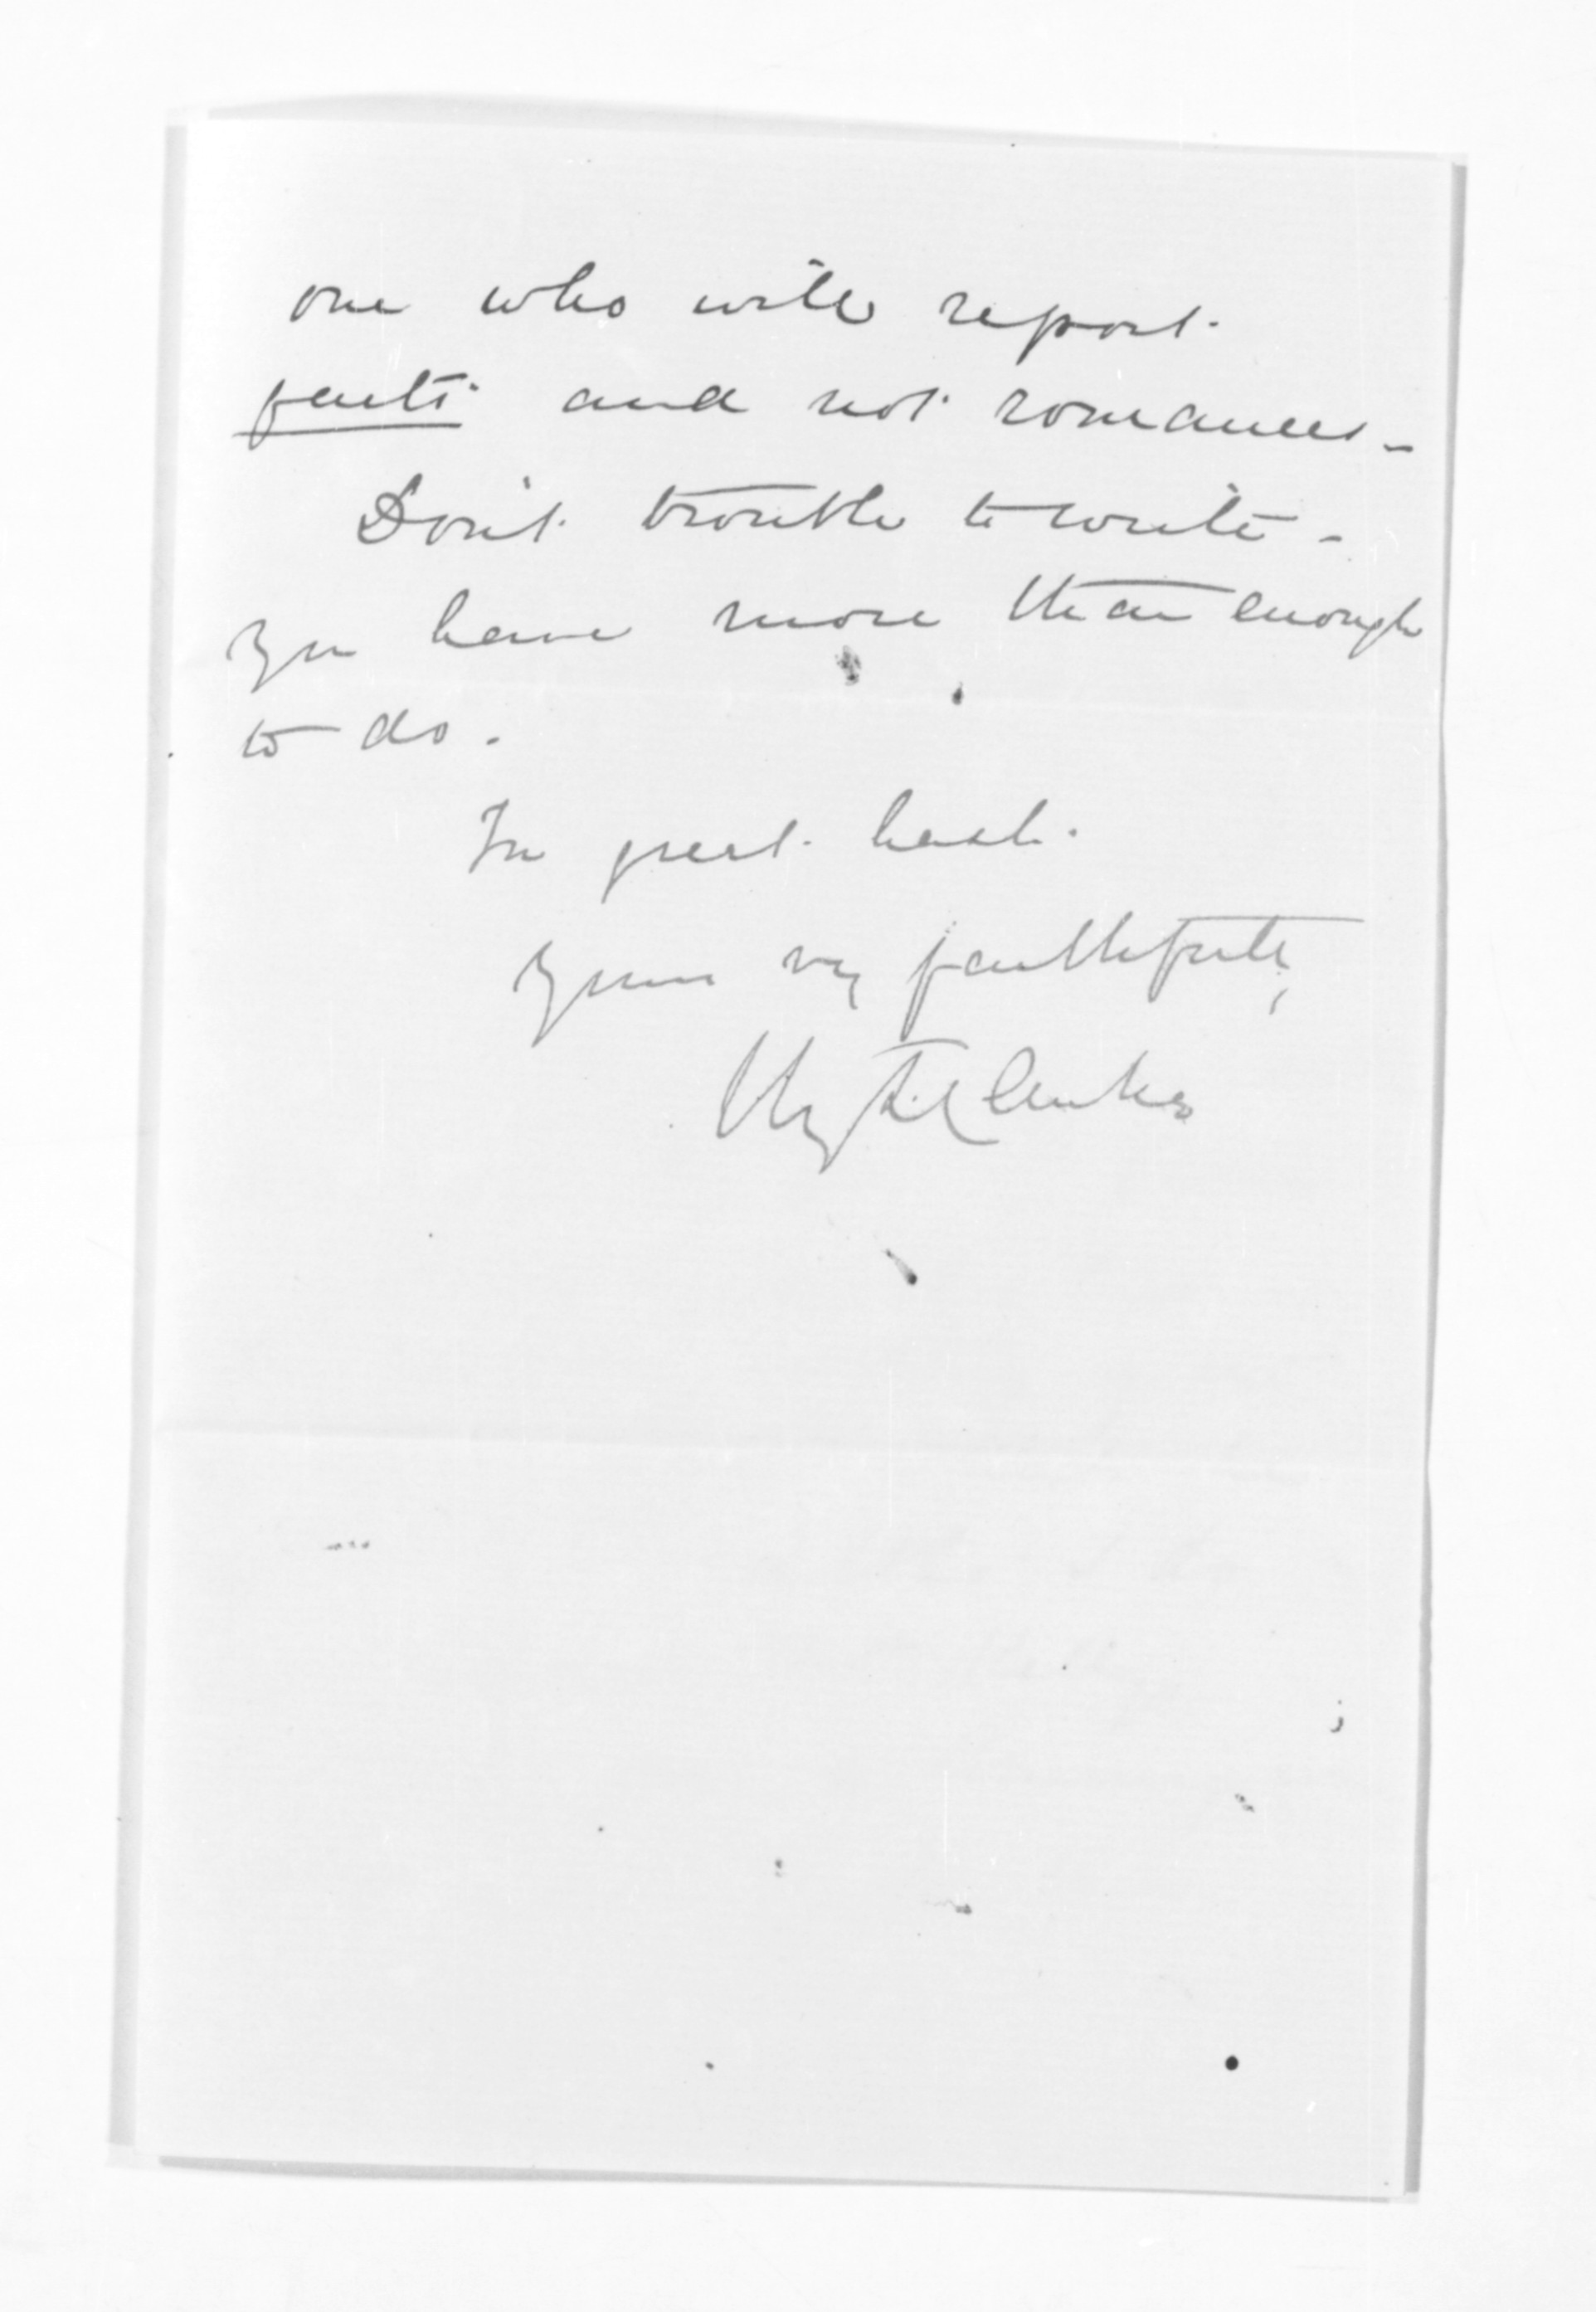 one who will report
facts and not romances -
Don't trouble to write -
you have more than enough
to do.
In great haste.
Yours very faithfully,